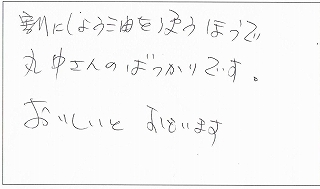 割にしょう油を使うほうで
丸中さんのばっかりです。
おいしいと思います